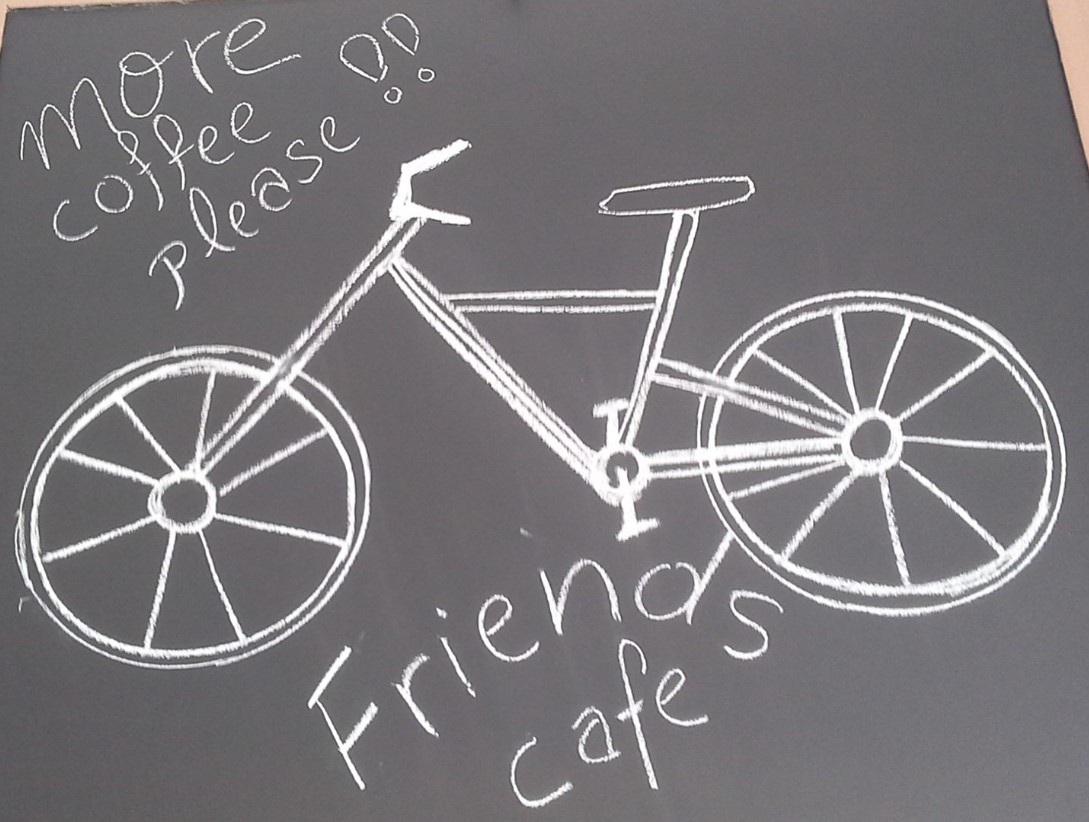 more
coffee
please !!
Friends
cafe